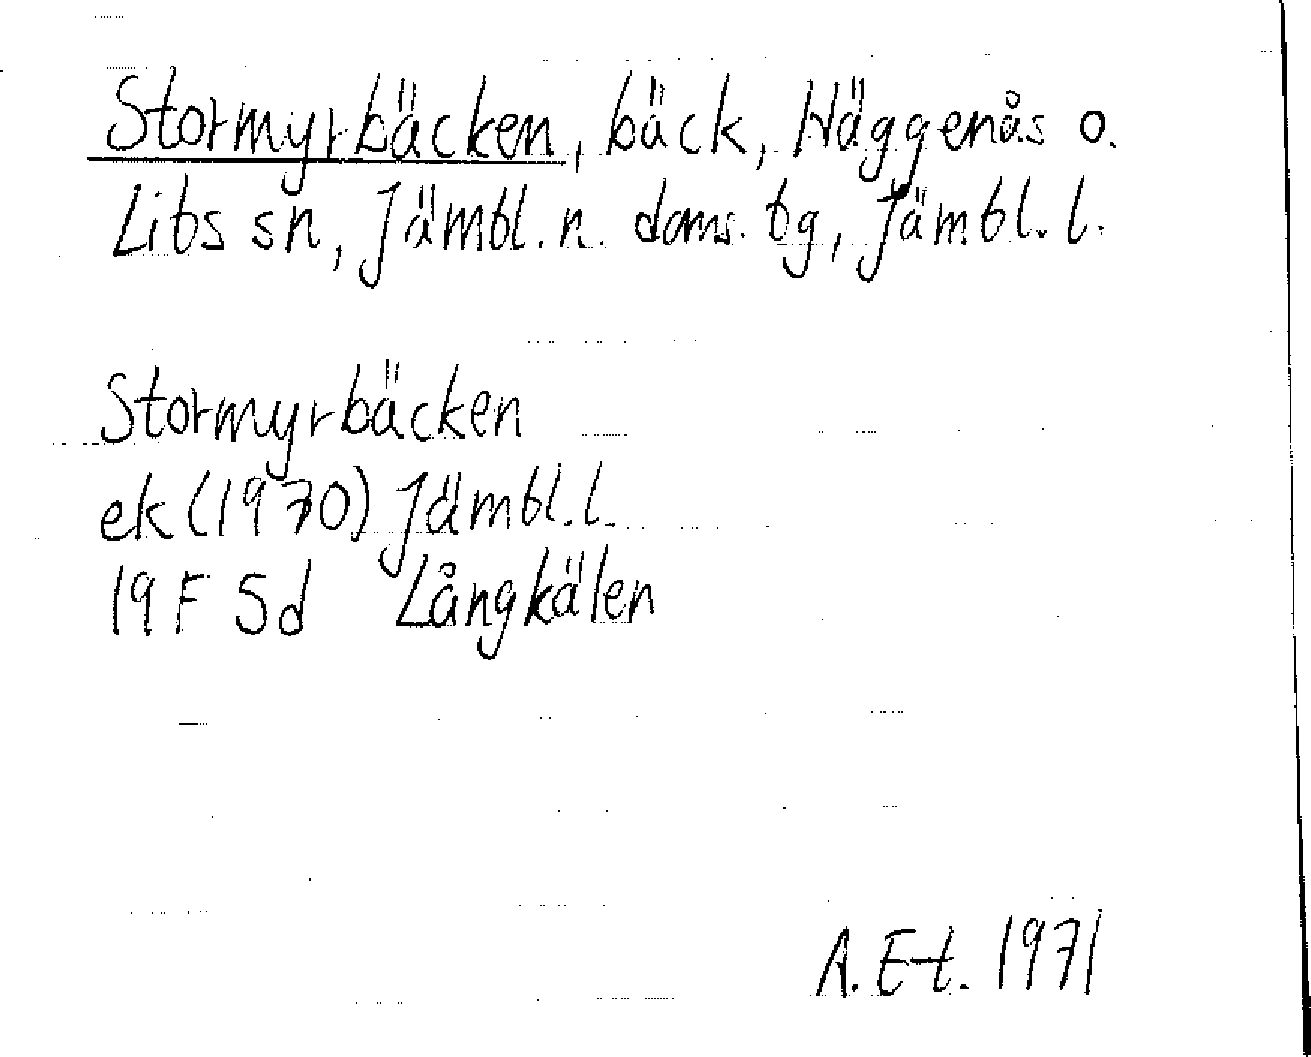 Stormyrbäcken, bäck, Häggenås o.
Lits sn, Jämtl. n. doms. tg, Jämtl. l.
Stormyrbäcken
ek (1970) Jämtl. l.
19 F 5d Långkälen
A. E-t. 1971